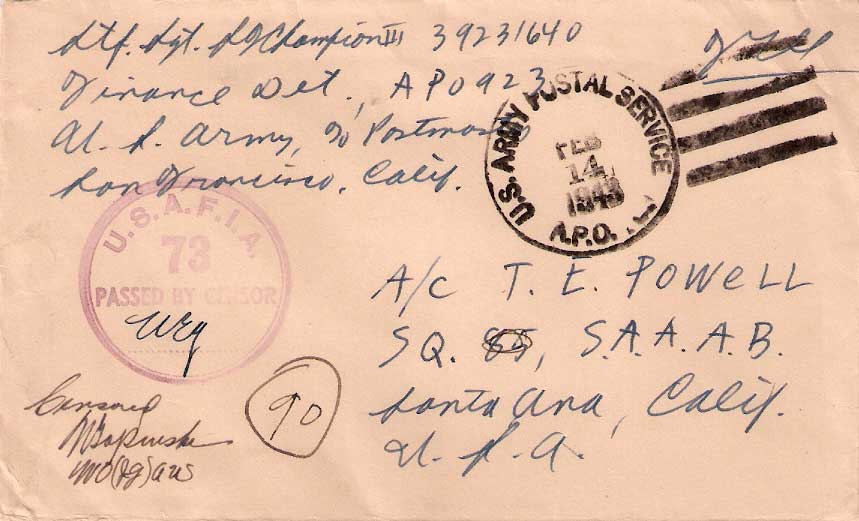 Stf. Sgt. S J Champion III 39231640
Free
Finance Det., APO 923
U. S. Army, c/o Postmaster
San Francisco, Calif.
U.S. ARMY POSTAL SERVICE
FEB
14
1943
A.P.O.
U.S.A.F.I.A.
73
PASSED BY CENSOR
A/C T. E. POWELL
SQ. , S.A.A.A.B.
Santa Ana, Calif.
U. S. A.
90
Censored
WO(jg) aus